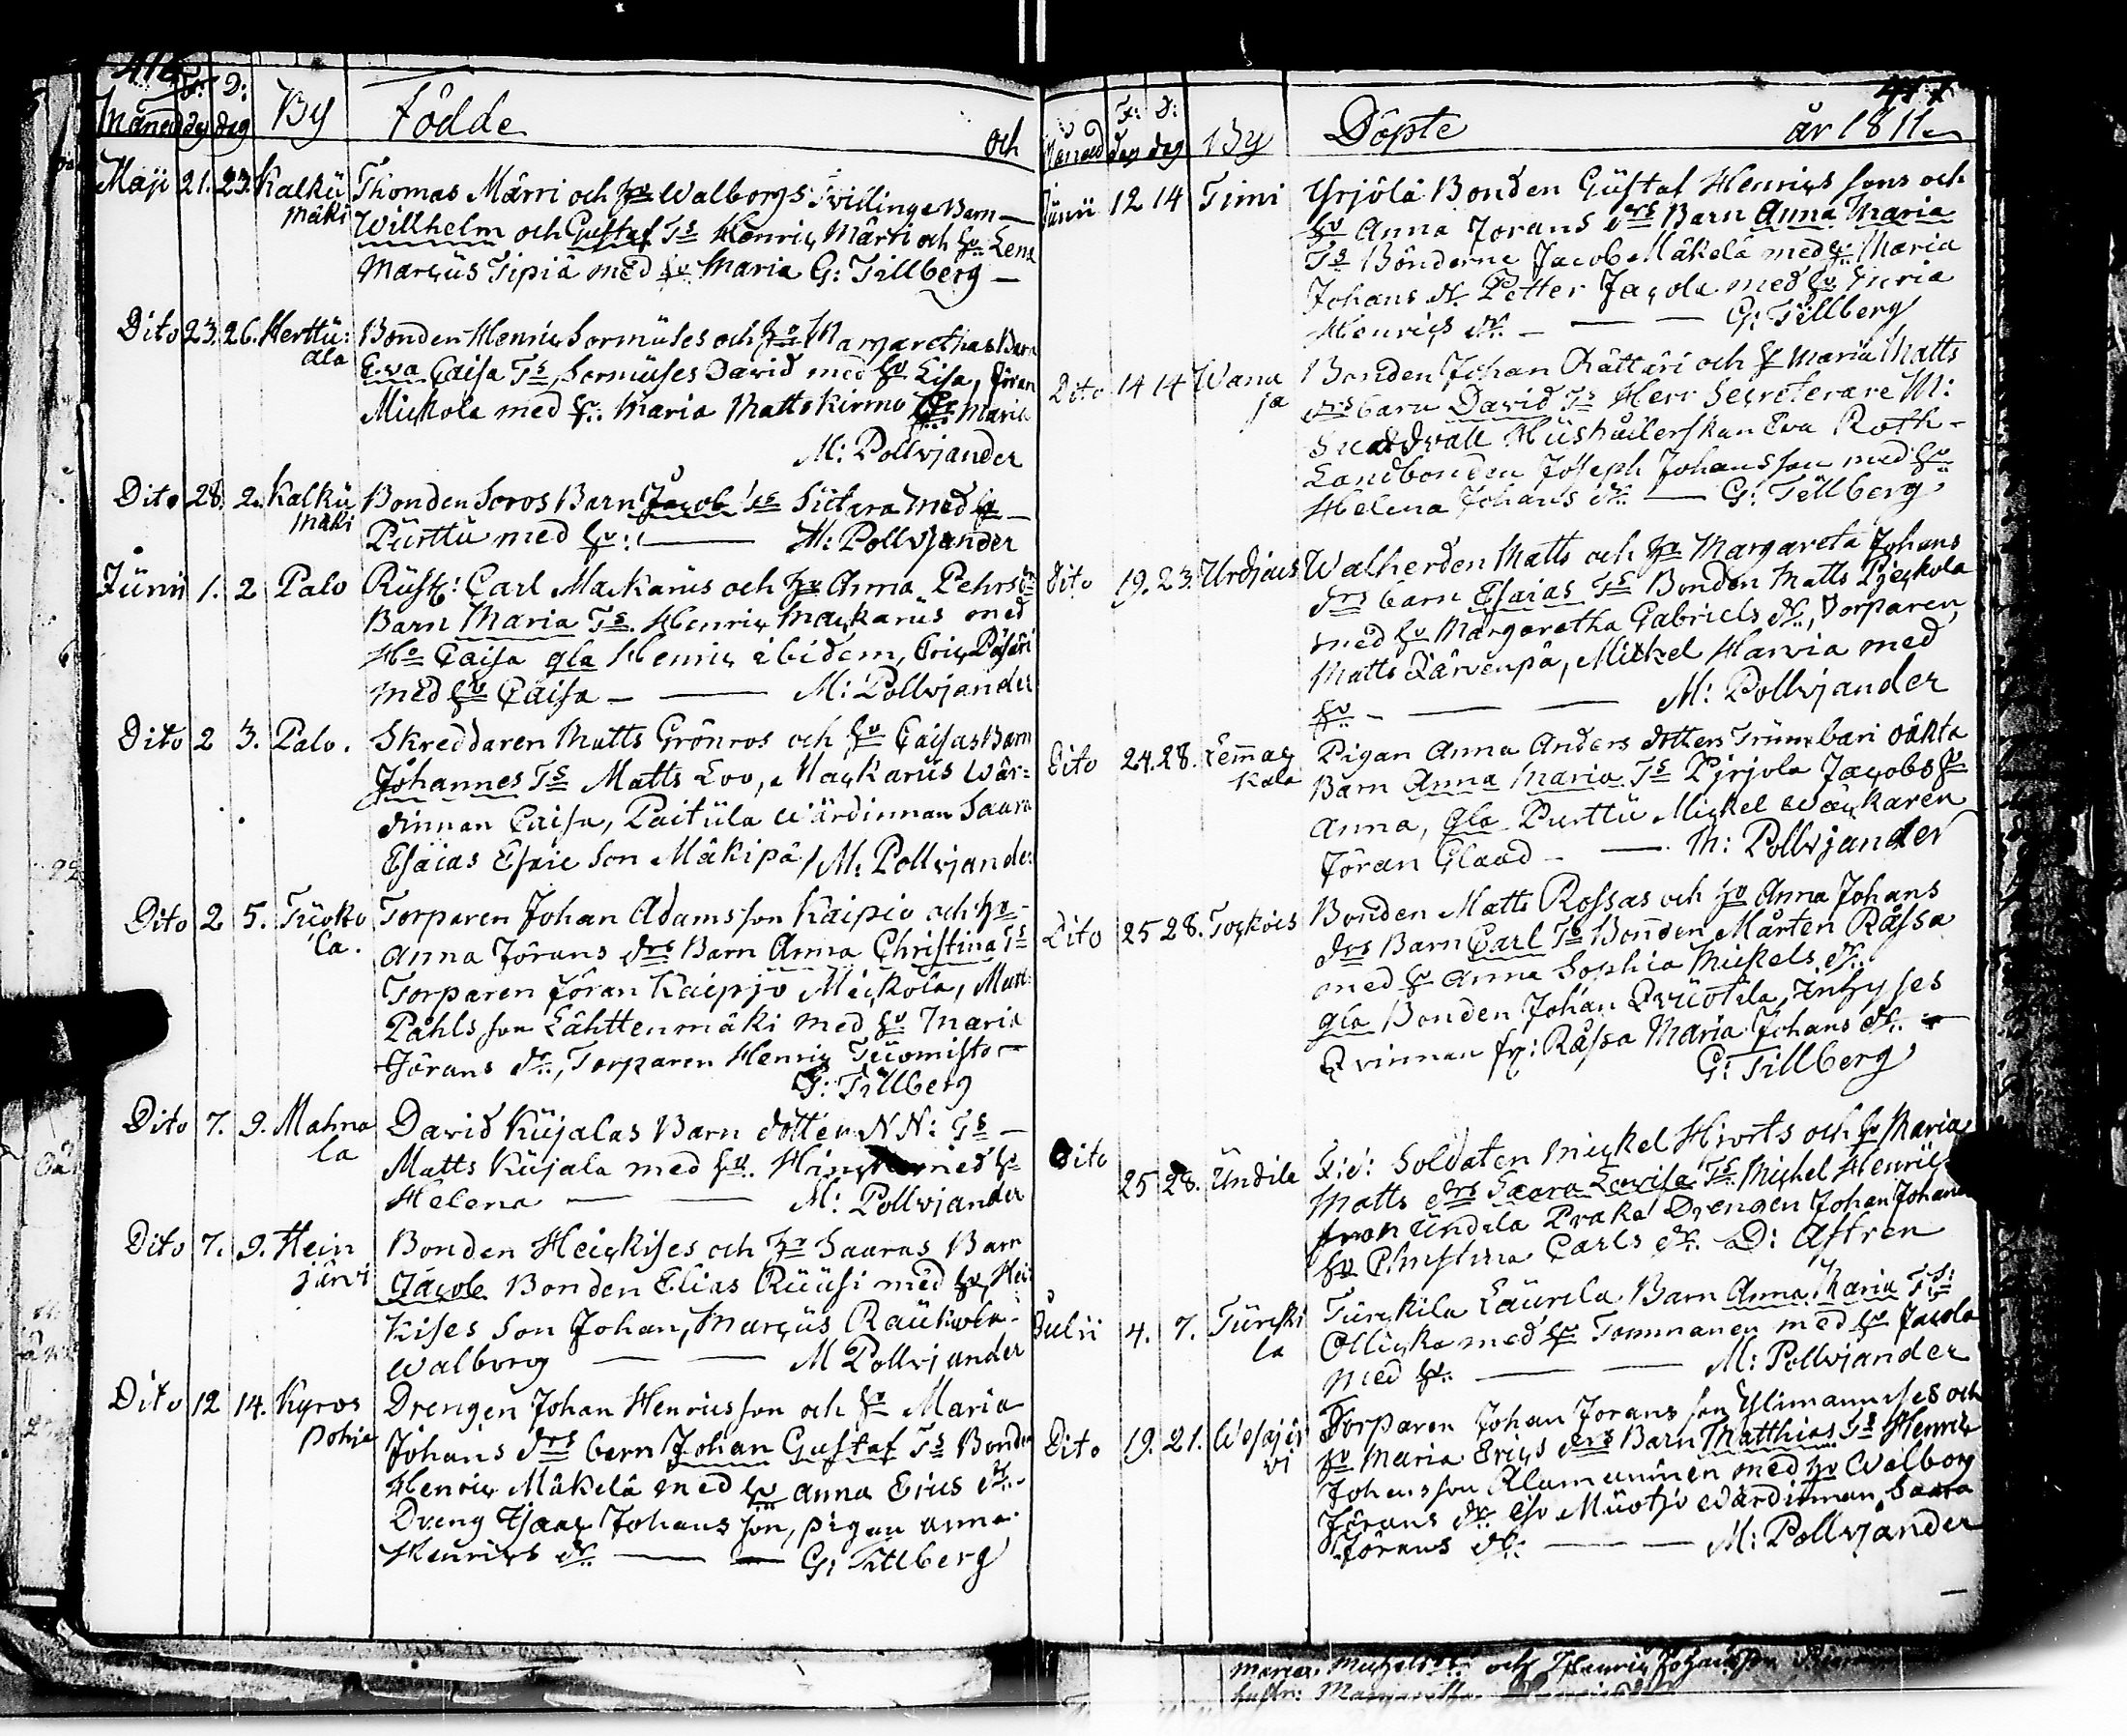 Månad dag D: dag By Födde och
Maji 21. 23. Kalkü mäki Thomas Märri och hu Walborgs Tvillinge Barn
Willhelm och Gustaf Ts Henric Märri och hu Lena
Marcüs Tipiä med hu Maria G: Tillberg
Dito 23. 26. Herttü: ala Bonden Henric Sormüses och hu Margarethas Barn
Eva Caisa Ts Sormüses David med hu Lisa, Jöran
Mickola med hu: Maria Matts Kirmo Maria
M: Pollvjander
Dito 28. 2. Kalkü mäki Bonden Soros Barn Jacob Ts Sictara med hu
Pürttü med hu: M: Pollvjander
Jünii 1. 2 Palo Rüsth: Carl Mackarüs och hu Anna Pehrs dr
Barn Maria Ts Henric Mackarüs med
Ho Caisa gla Henric ibidem, Eric
med hu Caisa M: Pollvjander
Dito 2 3. Palo. Skreddaren Matts Grönros och hu Caisas Barn
Johannes Ts Matts Lov, Mackarüs Wär-
dinnan Caisa, Paitüla Wärdinnan Saara
Esaias Esaie Son Mäkipä M: Pollvjander
Dito 2 5. Tüoko la. Torparen Johan Adamsson Kaipio och hu
Anna Jörans drs Barn Anna Christina Ts
Torparen Jöran Kaipjo Mickola, Matt
Påhlsson Lähttenmäki med hu Maria
Jörans dr, Torparen Henric Tüomisto
G: Tillberg
Dito 7. 9. Mahna la David Küjalas Barn dotter NN: Ts
Matts Küjala med hu. med hu
Helena M: Pollvjander
Dito 7. 9. Hein järvi Bonden Heickises och hu Saaras Barn
Jacob Bonden Elias Rüüsi med hu, Hei
kises Son Johan, Marcüs
Walborg M Pollvjander
Dito 12 14. Kyros pohja Drengen Johan Henricsson och hu Maria
Johans drs barn Johan Gustaf Ts Bonden
Henric Mäkelä med hu Anna Erics dr
Dreng Isaac Johansson, pigan Anna
Henrics dr G: Tillberg
Månad F: dag D: dag By Döpte år 1811
Jünii 12 14 Timi Yrjölä Bonden Güstaf Henrics sons och
hu Anna Jorans drs Barn Anna Maria
Ts Bönderne Jacob Mäkelä med hu Maria
Johans dr Petter Jacola med hu Maria
Henrics dr. G: Tillberg
Dito 14 14 Wana ja Bonden Johan Rättäri och hu Maria Matts
drs barn David Ts Herr Secreterare M:
Hüshållerskan Eva Roth
Landbonden Joseph Johansson med hu
Helena Johans dr. G: Tillberg
Dito 19. 23. Urdiais Walherden Matts och hu Margareta Johans
drs barn Esaias Ts Bonden Matts Pjeskola
med hu Margaretha Gabriels dr., Torparen
Matts Järvenpä, Mickel Harvia med
hu M: Pollvjander
Dito 24. 28. Lemmac kala Pigan Anna Anders dotters Trümbari oäkta
Barn Anna Maria Ts Pjrjola Jacobs hu
Anna, gla Purttü Mickel Wäckaren
Jöran Glaad M: Pollvjander
Dito 25 28. Torkois Bonden Matts Rossas och hu Anna Johans
drs Barn Carl Ts Bonden Mårten Råssa
med hu Anna Sophia Mickels dr.
gla Bonden Johan, Inhyses
Qvinnan fr: Råssa Maria Johans dr.
G: Tillberg
Dito 25 28. Ündila Soldaten Mickel Hivits och hu Maria
Matts drs Saara Lovisa Ts Michel Henrics
från Ündila Praka Drengen Johan Johans
hu Christina Carls dr. D: Astren
Julii 4. 7. Türcki la Türckila Laürila Barn Anna Maria Ts:
Ollicka med hu Tommanen med hu Jacola
med hu. M: Pollvjander
Dito 19. 21. Wesajär vi Torparen Johan Jorans son Ylimannises och
hu Maria Erics drs Barn Matthias Ts Henric
Johansson Alamanninen med hu Walborg
Jörans dr Müotjo Wärdinnan Saara
Jörans dr. M: Pollvjander